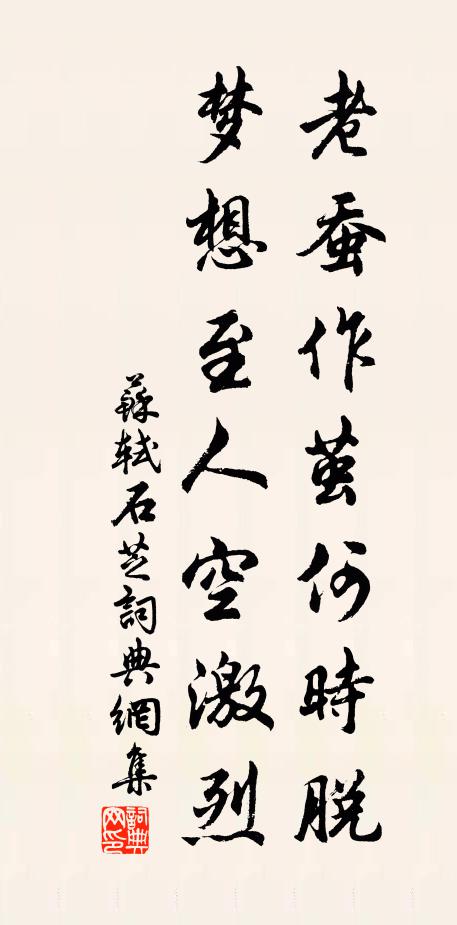 老蚕作茧何時脱
梦想至人空激烈
蘇轼石芝詞典網集
詞典网印